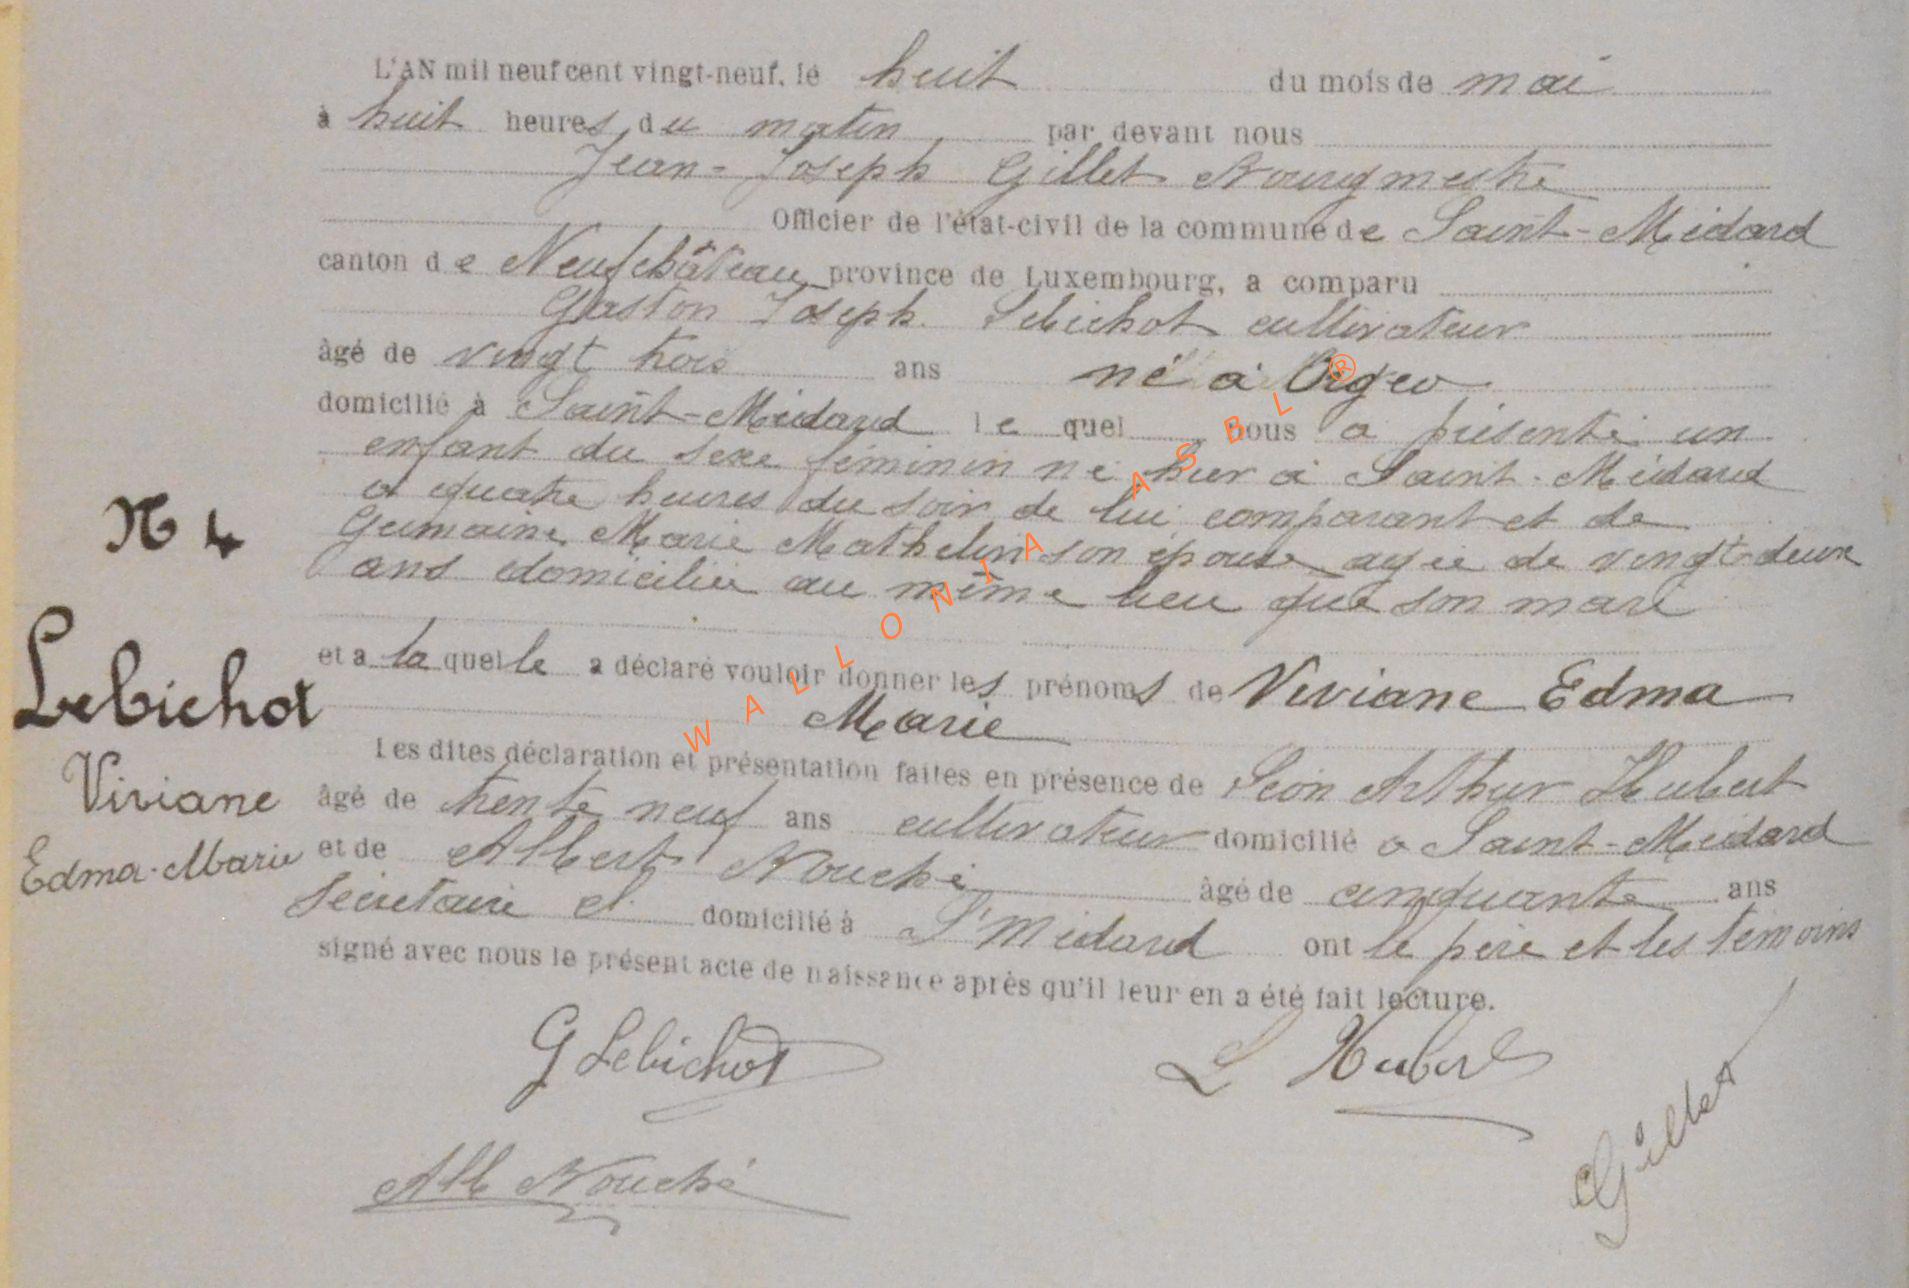 L'AN mil neuf cent vingt-neuf, le huit du mois de mai
à huit heures du matin par devant nous
Jean-Joseph Gillet Bourgmestre
Officier de l'état-civil de la commune de Saint-Médard
canton de Neufchâteau province de Luxembourg, a comparu
Gaston Joseph Lebichot cultivateur
âgé de vingt trois ans né à Orgeo
domicilié à Saint-Médard lequel nous a présenté un
enfant du sexe féminin né hier à Saint-Médard
à quatre heures du soir de lui comparant et de
Germaine Marie Mathelin son épouse agée de vingt-deux
ans domiciliée au même lieu que son mari
et a laquelle a déclaré vouloir donner les prénoms de Viviane Edma
Marie
Les dites déclaration et présentation faites en présence de Léon Arthur Hubert
âgé de trente neuf ans cultivateur domicilié à Saint-Médard
et de Albert Nouché âgé de cinquante ans
secrétaire cl domicilié à St Médard ont le père et les témoins
signé avec nous le présent acte de naissance après qu'il leur en a été fait lecture.
N 4
Lebichot
Viviane
Edma-Marie
G Lebichot
L Hubert
Gillet
Alb Nouché
WALLONIA ASBL ®